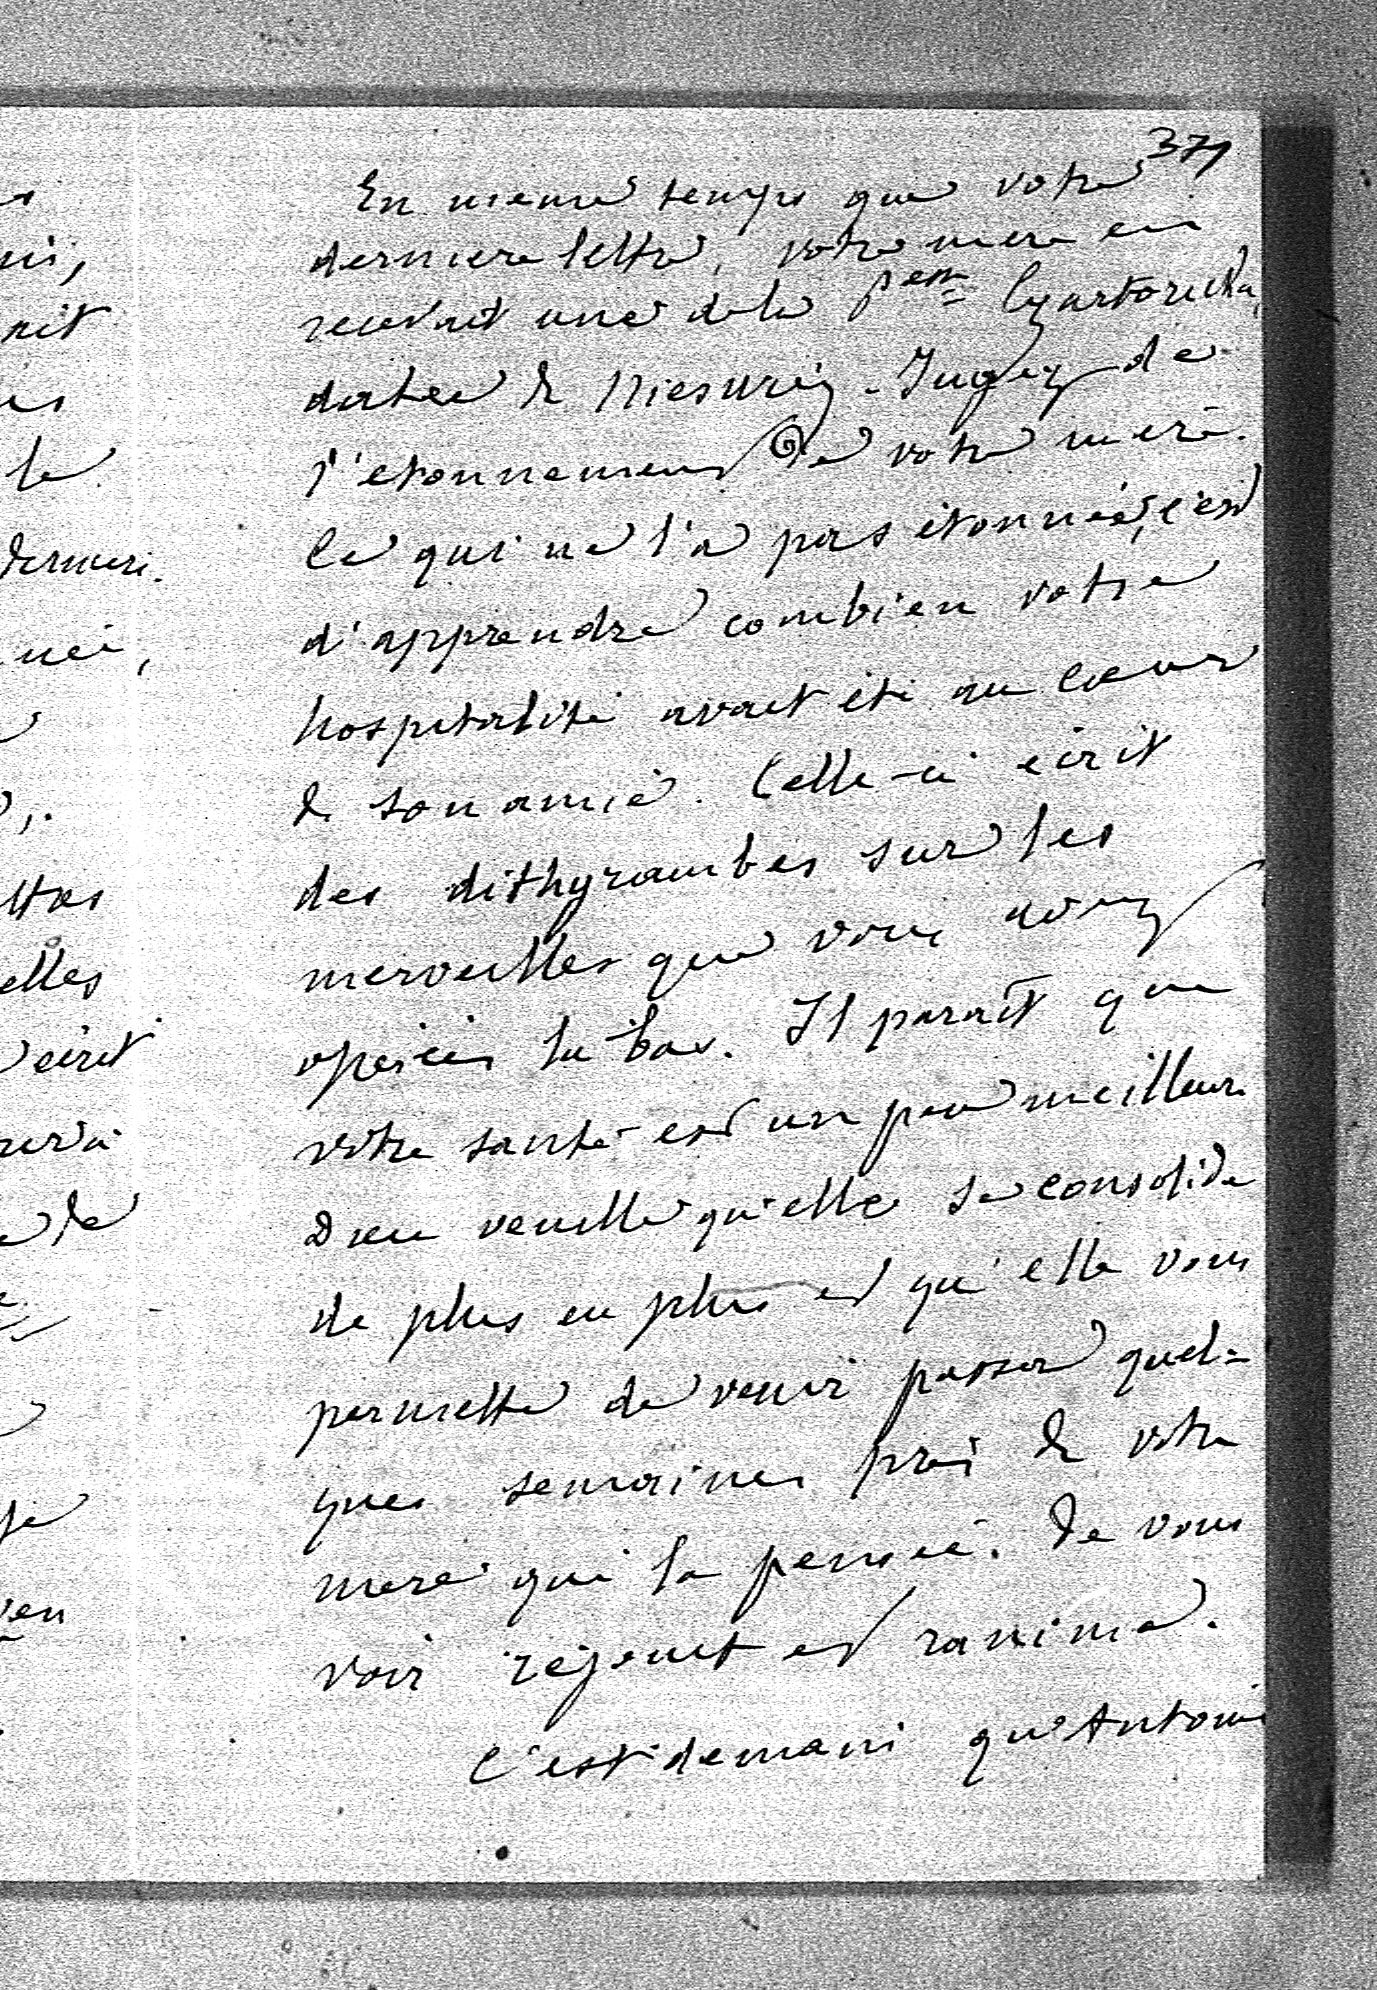 371
En meme temps que votre
derniere lettre, votre mere en
recevait une de la Pesse Czartoriska,
datee de Niesvrez. Jugez de
l'etonnement de votre mere.
Ce qui ne l'a pas étonnée, c'est
d'apprendre combien votre
hospitalité avait été au coeur
de son amie. Celle-ci écrit
des dithyrambes sur les
merveilles que vous avez
opérées la bas. Il paraît que
votre santé est un peu meilleure
Dieu veuille qu'elle se consolide
de plus en plus et qu'elle vous
permette de venir passer quel=
ques semaines près de votre
mere que la pensée de vous
voir réjouit et ranime.
C'est demain qu'Antoine